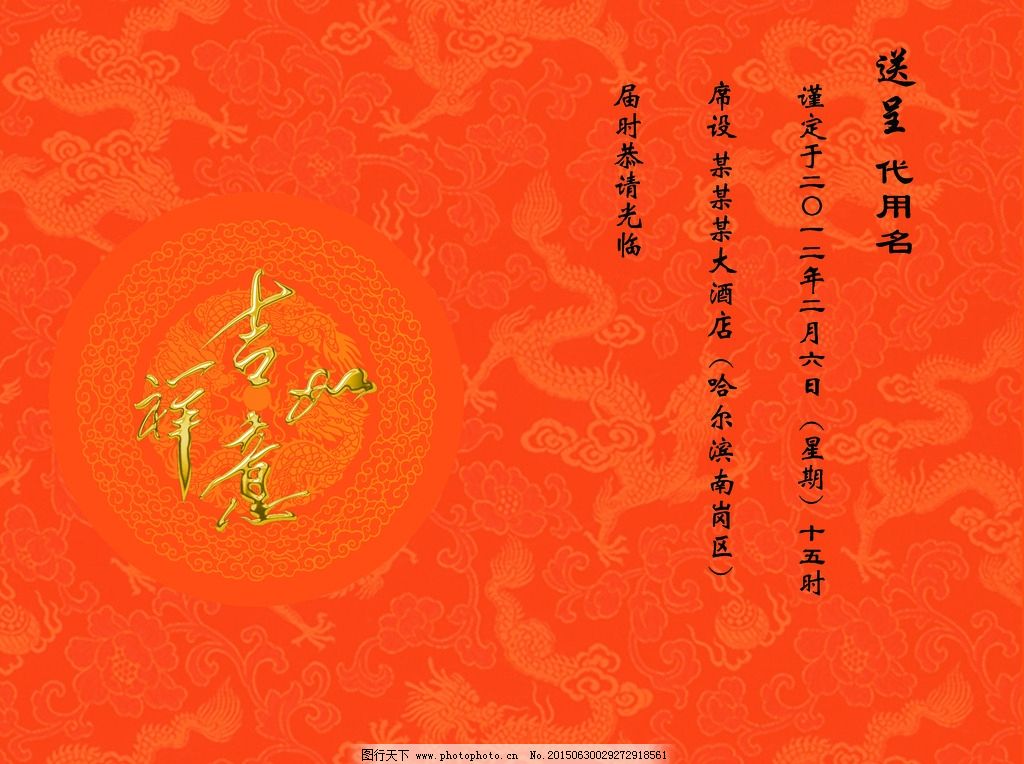 送呈 代用名
谨定于二〇一二年二月六日（星期）十五时
席设 某某某大酒店（哈尔滨南岗区）
届时恭请光临
吉祥如意
图行天下 www.photophoto.cn No.20150630029272918561